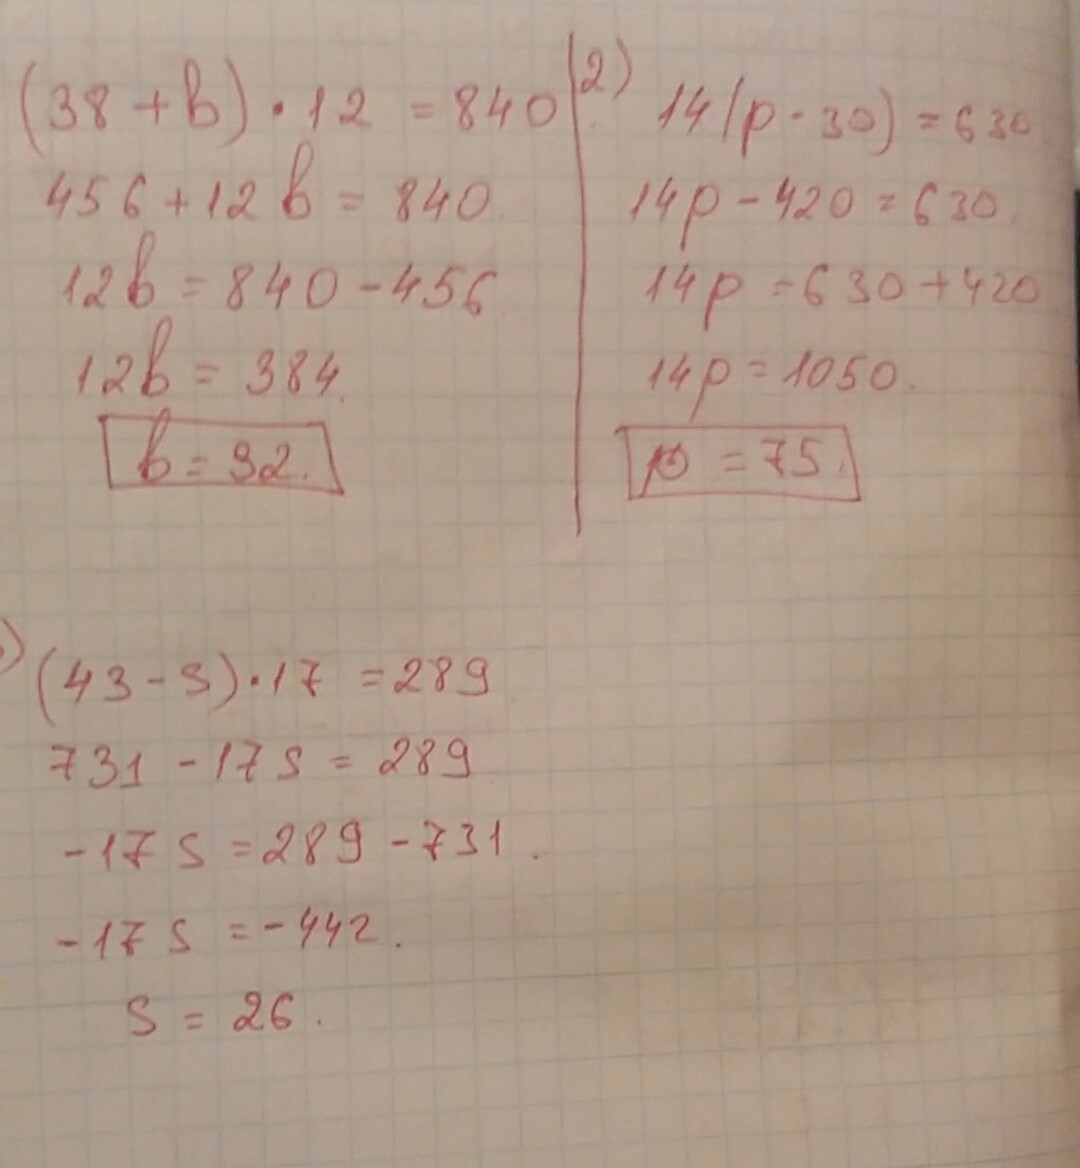 (38 + b) · 12 = 840
456 + 12b = 840
12b = 840 - 456
12b = 384.
b = 32.
2) 14(p - 30) = 630
14p - 420 = 630.
14p = 630 + 420
14p = 1050.
p = 75.
(43 - s) · 17 = 289
731 - 17s = 289
-17s = 289 - 731.
-17s = -442.
s = 26.